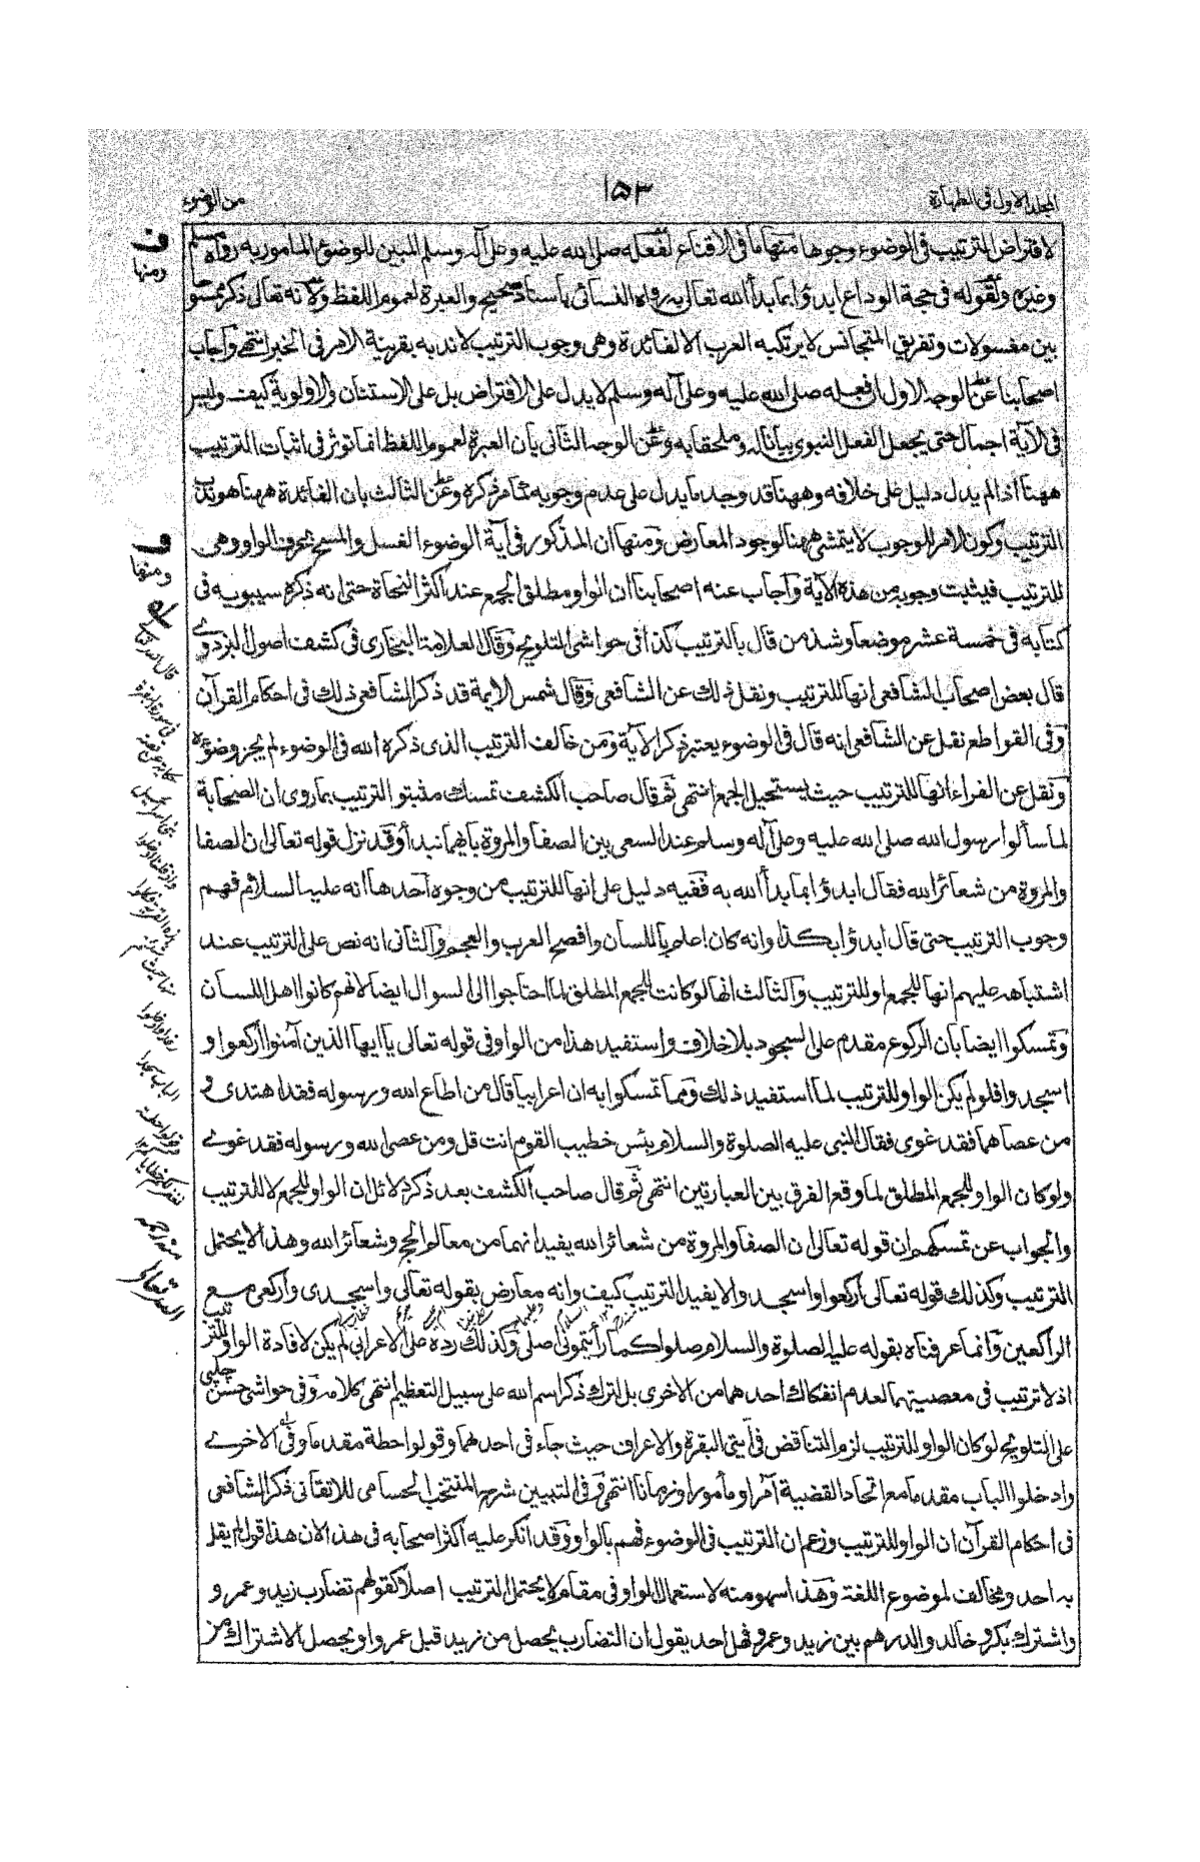 المجلد الاول فى الطهارة
١٥٣
من الوضوء
لافتراض الترتيب فى الوضوء وجوها منها ما فى الاقناع لفعله صلى الله عليه وعلى آله وسلم المبين للوضوء المامور به رواه مسلم
وغيره ولقوله فى حجة الوداع ابدؤا بما بدأ الله تعالى به رواه النسائى باسناد صحيح والعبرة لعموم اللفظ ولانه تعالى ذكر ممسوحا
بين مغسولات وتفريق المتجانس لا يرتكبه العرب الا لفائدة وهى وجوب الترتيب لا ندبه بقرينة الامر فى الخبر انتهى واجاب
اصحابنا عن الوجه الاول ان فعله صلى الله عليه وعلى آله وسلم لا يدل على الافتراض بل على الاستنان والاولوية كيف وليس
فى الآية اجمال حتى يجعل الفعل النبوى بيانا له وملحقا به وعن الوجه الثانى بان العبرة لعموم اللفظ انما توثر فى اثبات الترتيب
ههنا اذا لم يدل دليل على خلافه وههنا قد وجد ما يدل على عدم وجوبه مما مر ذكره وعن الثالث بان الفائدة ههنا هو ندب
الترتيب وكون الامر للوجوب لا يتمشى ههنا لوجود المعارض ومنها ان المذكور فى آية الوضوء الغسل والمسح بحرف الواو وهى
للترتيب فيثبت وجوبه من هذه الآية واجاب عنه اصحابنا ان الواو مطلق الجمع عند اكثر النحاة حتى انه ذكره سيبويه فى
كتابه فى خمسة عشر موضعا وشذ من قال بالترتيب كذا فى حواشى التلويح وقال العلامة البخارى فى كشف اصول البزدوى
قال بعض اصحاب الشافعى انها للترتيب ونقل ذلك عن الشافعى وقال شمس الايمة قد ذكر الشافعى ذلك فى احكام القرآن
وفى القواطع نقل عن الشافعى انه قال فى الوضوء يعتبر ذكر الآية ومن خالف الترتيب الذى ذكره الله فى الوضوء لم يجز وضوءه
ونقل عن الفراء انها للترتيب حيث يستحيل الجمع انتهى ثم قال صاحب الكشف تمسك مثبتو الترتيب بما روى ان الصحابة
لما سألوا رسول الله صلى الله عليه وعلى آله وسلم عند السعى بين الصفا والمروة بايهما نبدأ وقد نزل قوله تعالى ان الصفا
والمروة من شعائر الله فقال ابدؤا بما بدأ الله به ففيه دليل على انها للترتيب من وجوه احدها انه عليه السلام فهم
وجوب الترتيب حتى قال ابدؤا بكذا وانه كان اعلم باللسان وافصح العرب والعجم والثانى انه نص على الترتيب عند
اشتباهه عليهم انها للجمع او للترتيب والثالث انها لو كانت للجمع المطلق لما احتاجوا الى السوال ايضا لانهم كانوا اهل اللسان
وتمسكوا ايضا بان الركوع مقدم على السجود بلا خلاف واستفيد هذا من الواو فى قوله تعالى يا ايها الذين آمنوا اركعوا و
اسجدوا فلو لم يكن الواو للترتيب لما استفيد ذلك ومما تمسكوا به ان اعرابيا قال من اطاع الله ورسوله فقد اهتدى و
من عصاهما فقد غوى فقال النبى عليه الصلوة والسلام بئس خطيب القوم انت قل ومن عصى الله ورسوله فقد غوى
ولو كان الواو للجمع المطلق لما وقع الفرق بين العبارتين انتهى ثم قال صاحب الكشف بعد ذكر دلائل ان الواو للجمع لا للترتيب
والجواب عن تمسكهم ان قوله تعالى ان الصفا والمروة من شعائر الله يفيد انهما من معالم الحج وشعائر الله وهذا لا يحتمل
الترتيب وكذلك قوله تعالى اركعوا واسجدوا لا يفيد الترتيب كيف وانه معارض بقوله تعالى واسجدى واركعى مع
الراكعين وانما عرفناه بقوله عليه الصلوة والسلام صلوا كما رأيتمونى اصلى وكذلك رده على الاعرابى لم يكن لافادة الواو الترتيب
اذ لا ترتيب فى معصيتهما لعدم انفكاك احدهما من الاخرى بل لترك ذكر اسم الله على سبيل التعظيم انتهى كلامه وفى حواشى حسن چلپى
على التلويح لو كان الواو للترتيب لزم التناقض فى آيتى البقرة والاعراف حيث جاء فى احدهما وقولوا حطة مقدما وفى الاخرى
وادخلوا الباب مقدما مع اتحاد القضية آمرا ومأمورا وزمانا انتهى وفى التبيين شرح المنتخب الحسامى للاتقانى ذكر الشافعى
فى احكام القرآن ان الواو للترتيب وزعم ان الترتيب فى الوضوء فهم بالواو وقد انكر عليه اكثر اصحابه فى هذا لان هذا قول لم يقل
به احد ومخالف لموضوع اللغة وهذا سهو منه لاستعمال الواو فى مقام لا يحتمل الترتيب اصلا كقولهم تضارب زيد وعمرو و
واشترك بكر و خالد والدرهم بين زيد وعمرو فهل احد يقول ان التضارب يحصل من زيد قبل عمرو او يحصل الاشتراك من
ف
ومنها
و
ومنها